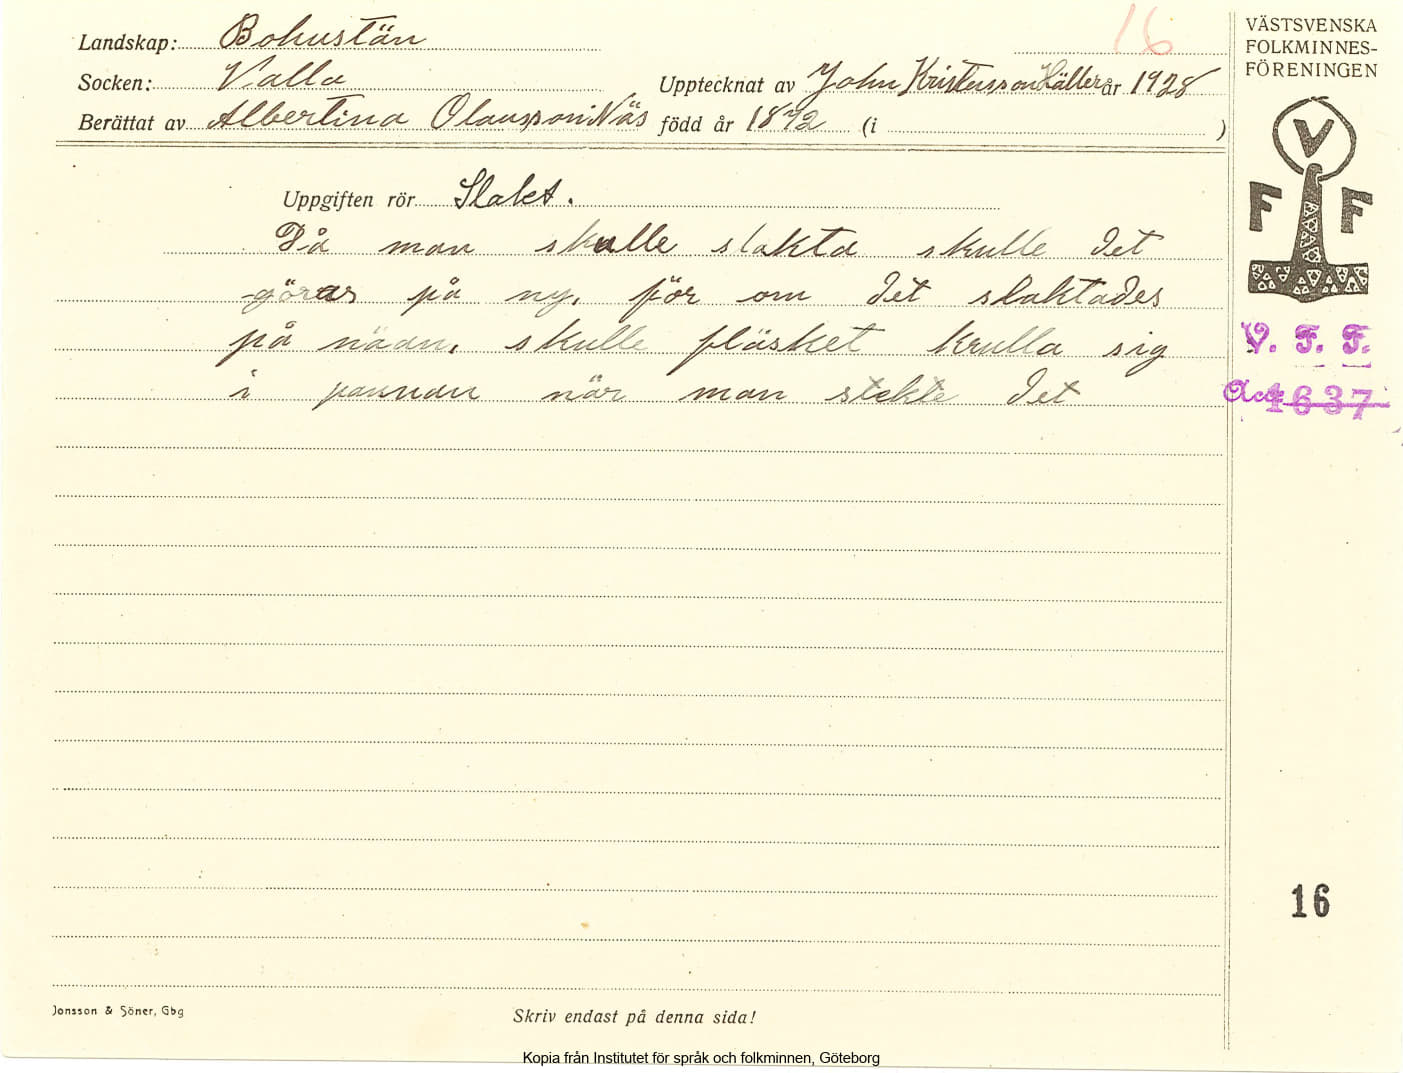 Landskap: Bohuslän
16
Socken: Valla
Upptecknat av John Kristensson Häller år 1928
Berättat av Albertina Olausson i Näs född år 1872 (i )
Uppgiften rör Slakt.
Då man skulle slakta skulle det
göras på ny, för om det slaktades
på nään, skulle fläsket krulla sig
i pannan när man stekte det
VÄSTSVENSKA
FOLKMINNES-
FÖRENINGEN
V
F F
V. F. F.
Acc. 1637
16
Jonsson & Söner, Gbg
Skriv endast på denna sida!
Kopia från Institutet för språk och folkminnen, Göteborg